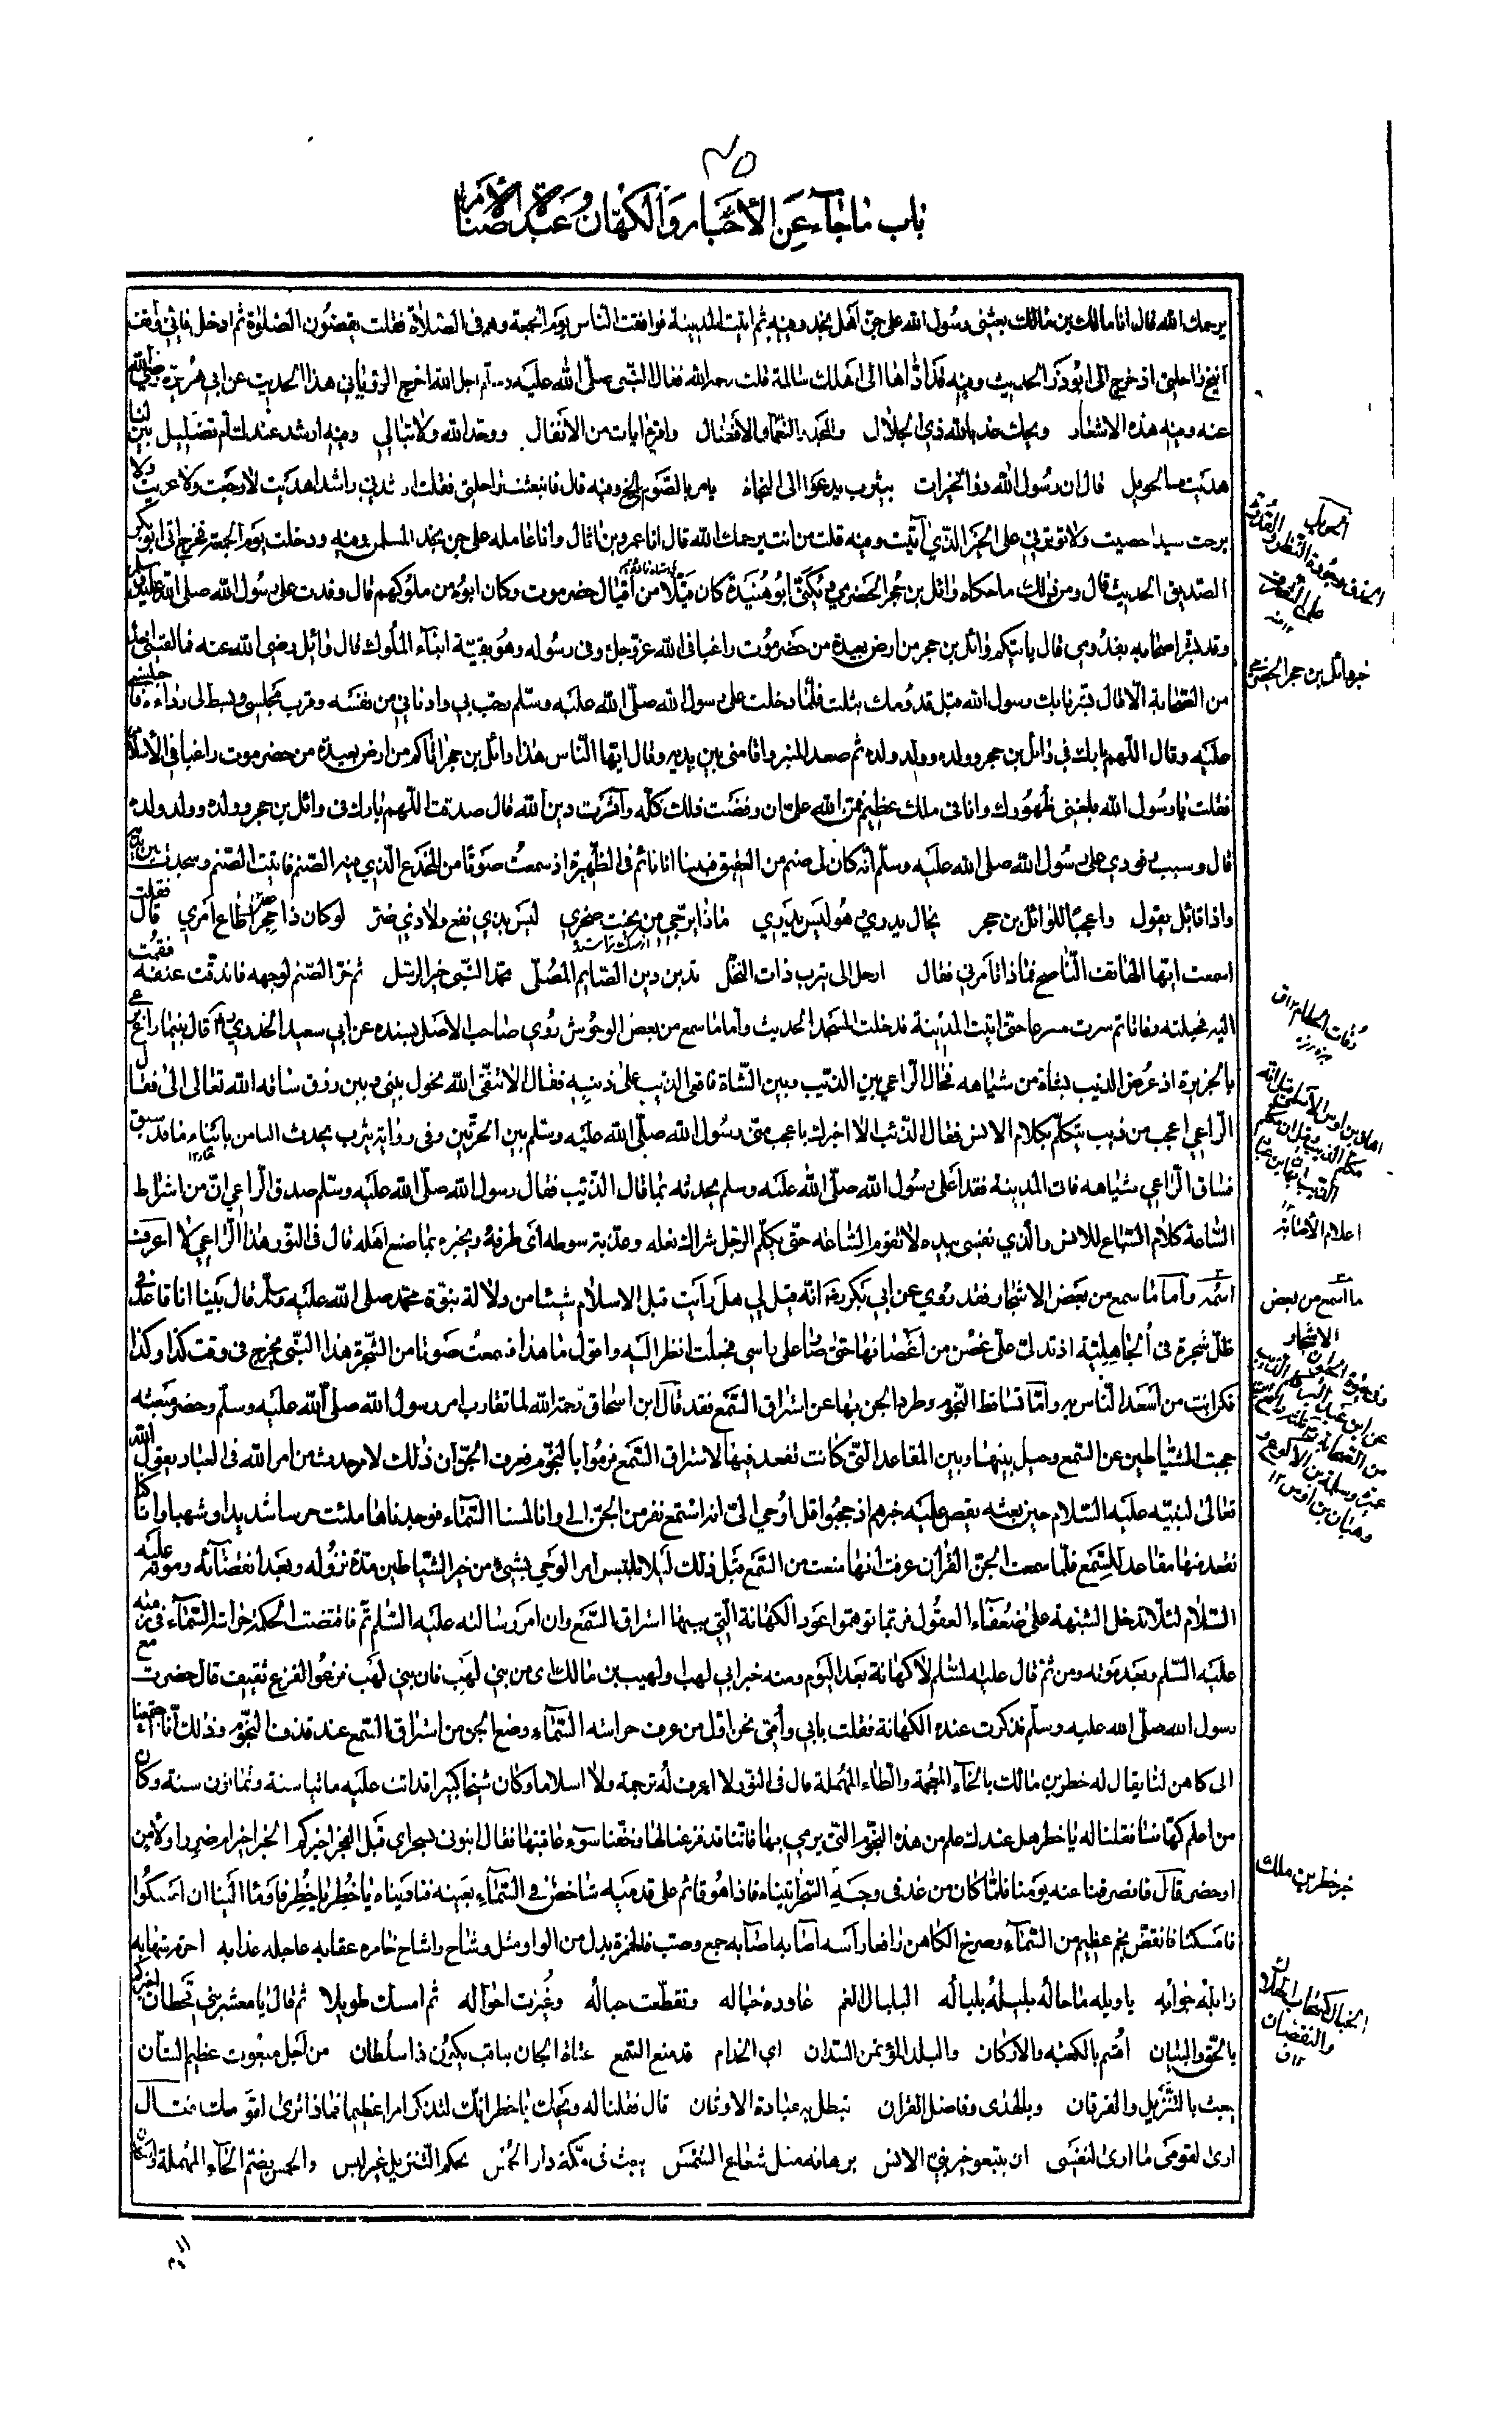 باب ما جآء عن الأحبار والكهان وعبدة الأصنام
يرحمك الله قال انا مالك بن مالك بعثنى رسول الله على جن اهل نجد ومنه ثم اتيت المدينة فوافقت الناس يوم الجمعة وهم فى الصلاة فقلت يقضون الصلوة ثم ادخل فانى
انيخ راحلتى اذ خرج الى ابو ذر الحديث وفيه قد اداها الى اهلك سالمة قلت رحمه الله فقال النبى صلى الله عليه و.. اجل رحمه الله اخرج الرويانى هذا الحديث عن ابى هريرة رضى الله
عنه وفيه هذه الاشعار ويحك عذ بالله ذى الجلال والمجد والنعمآء والافضال واقرء ايات من الانفال ووحد الله ولا تبالى وفيه ارشد عندك ام تضليل بين لنا
هديت ما الحويل قال ان رسول الله ذو الخيرات بيثرب يدعوا الى النجاة يامر بالصوم الخ وفيه قال فانبعثت راحلتى فقلت ارشدنى راشدا هديت لا جعت ولا عريت ولا
برحت سيدا حصيت ولا توثرنى على الخير الذى اتيت وفيه قلت من انت يرحمك الله قال انا عمرو بن اثال وانا عامله على جن نجد المسلمين وفيه ودخلت يوم الجمعة فخرج الى ابو بكر
الصديق الحديث قال ومن ذلك ما حكاه وائل بن حجر الحضرمى ويكنى ابو هنيدة كان قيلا من اقيال حضرموت وكان ابوه من ملوكهم قال وفدت على رسول الله صلى الله عليه وسلم
وقد بشر اصحابه بقدومى قال ياتيكم وائل بن حجر من ارض بعيدة من حضرموت راغبا فى الله عز وجل وفى رسوله وهو بقية ابناء الملوك قال وائل رضى الله عنه فما لقينى احد
من الصحابة الا قال بشرنا بك رسول الله قبل قدومك بثلث فلما دخلت على رسول الله صلى الله عليه وسلم رحب بى وادنانى من نفسه وقرب مجلسى وبسط لى رداءه فاجلسنى
عليه وقال اللهم بارك فى وائل بن حجر وولده وولد ولده ثم صعد المنبر واقامنى بين يديه وقال ايها الناس هذا وائل بن حجر اتاكم من ارض بعيدة من حضرموت راغبا فى الأسلام
فقلت يا رسول الله بلغنى ظهورك وانا فى ملك عظيم فمن الله على ان رفضت ذلك كله وآثرت دين الله قال صدقت اللهم بارك فى وائل بن حجر وولده وولد ولده
قال وسبب وفودى على رسول الله صلى الله عليه وسلم انه كان لى صنم من العقيق فبينا انا نائم فى الظهيرة اذ سمعت صوتا من المخدع الذى فيه الصنم فاتيت الصنم وسجدت بين يديه
واذا قائل يقول واعجبا لوائل بن حجر يخال يدرى وهو ليس يدرى ماذا يرجى من نحيت صخرى ليس بذى نفع ولا ذى ضر لو كان ذا حجر اطاع امرى قال فقلت
اسمعت ايها الهاتف الناصح فماذا تامرنى فقال ارحل الى يثرب ذات النخل تدين دين الصايم المصلى محمد النبى خير الرسل ثم خر الصنم لوجهه فاندقت عنقه فقمت
اليه فجعلته رفاتا ثم سرت مسرعا حتى اتيت المدينة فدخلت المسجد الحديث واما ما سمع من بعض الوحوش روى صاحب الاصل بسنده عن ابى سعيد الخدرى قال بينما راع يرعى
بالجزيرة اذ عرض الذئب بشاة من شياهه فحال الراعى بين الذئب وبين الشاة فاقعى الذئب على ذنبه فقال الا تتقى الله يحول بينى وبين رزق ساقه الله تعالى الى فقال
الراعى اعجب من ذئب يتكلم بكلام الانس فقال الذئب الا اخبرك باعجب منى رسول الله صلى الله عليه وسلم بين الحرتين وفى رواية بيثرب يحدث الناس بانباء ما قد سبق
فساق الراعى شياهه فاتى المدينة فغدا على رسول الله صلى الله عليه وسلم يحدثه بما قال الذئب فقال رسول الله صلى الله عليه وسلم صدق الراعى ان من اشراط
الساعة كلام السباع للانس والذى نفسى بيده لا تقوم الساعة حتى يكلم الرجل شراك نعله وعذبة سوطه اى طرفه ويخبره بما صنع اهله قال فى النور هذا الراعى لا اعرف
اسمه واما ما سمع من بعض الاشجار فقد روى عن ابى بكر رضه انه قيل لى هل رايت قبل الاسلام شيئا من دلالة نبوة محمد صلى الله عليه وسلم قال بينا انا قاعد فى
ظل شجرة فى الجاهلية اذ تدلى على غصن من اغصانها حتى صار على راسى فجعلت انظر اليه واقول ما هذا فسمعت صوتا من الشجرة هذا النبى يخرج فى وقت كذا وكذا
فكن انت من اسعد الناس به واما تساقط النجوم وطرد الجن بها عن استراق السمع فقد قال ابن اسحاق رحمه الله لما تقارب امر رسول الله صلى الله عليه وسلم وحضر مبعثه
حجبت الشياطين عن السمع وحيل بينها وبين المقاعد التى كانت تقعد فيها لاستراق السمع فرموا بالنجوم فعرف الجن ان ذلك لامر حدث من امر الله فى العباد يقول الله
تعالى لنبيه عليه السلام حين بعثه يقص عليه خبرهم اذ حجبوا قل اوحى الى انه استمع نفر من الجن الى وانا لمسنا السمآء فوجدناها ملئت حرسا شديدا وشهبا وانا كنا
نقعد منها مقاعد للسمع فلما سمعت الجن القرآن عرفت انها منعت من السمع قبل ذلك ليلا يلتبس امر الوحى بشىء من خبر الشياطين مدة نزوله وبعد انقضائه وموته عليه
السلام لئلا تدخل الشبهة على ضعفآء العقول فربما توهموا عود الكهانة التى سببها استراق السمع وان امر رسالته عليه السلم تم فاقتضت الحكمة حراسة السمآء فى زمنه
عليه السلم وبعد موته ومن ثم قال عليه السلم لا كهانة بعد اليوم ومنه خبر ابى لهب او لهيب بن مالك اى من بنى لهب فان بنى لهب فزعوا لفزع ثقيف قال حضرت مع
رسول الله صلى الله عليه وسلم فذكرت عنده الكهانة فقلت بابى وأمى نحن اول من عرف حراسة السمآء ومنع الجن من استراق السمع عند قذف النجوم وذلك أنا اجتمعنا
الى كاهن لنا يقال له خطر بن مالك بالخآء المعجمة والطاء المهملة قال فى النور لا اعرف له ترجمة ولا اسلاما وكان شيخا كبيرا قد اتت عليه مائتا سنة وثمانون سنة وكان
من اعلم كهاننا فقلنا له يا خطر هل عندك علم من هذه النجوم التى يرمى بها فاننا قد فزعنا لها وخفنا سوء عاقبتها فقال ائتونى بسحر اى قبل الفجر اخبركم الخبر اخير ام ضير او لأمن
او حضر قال فانصرفنا عنه يومنا فلما كان من غد فى وجه السحر اتيناه فاذا هو قائم على قدميه شاخص فى السمآء بعينه فناديناه يا خطر يا خطر فاومأ الينا ان امسكوا
فامسكنا فانقض نجم عظيم من السمآء وصرخ الكاهن رافعا راسه اصابه اصابه جمع وصب فالهمزة بدل من الواو مثل وشاح واشاح خامره عقابه عاجله عذابه احرقه شهابه
زايله جوابه يا ويله ما حاله بلبله بلباله البلبال الغم عاوده خباله وتقطعت حباله وغيرت احواله ثم امسك طويلا ثم قال يا معشر بنى قحطان اخبركم
بالحق والبيان اقسم بالكعبة والاركان والبلد المؤتمن السدان اى الخدام قد منع السمع عتاة الجان بثاقب بكف ذى سلطان من اجل مبعوث عظيم الشآن
يبعث بالتنزيل والفرقان وبالهدى وفاضل القرآن تبطل به عبادة الاوثان قال فقلنا له ويحك يا خطر انك لتذكر امرا عظيما فماذا ترى لقومك فقال
ارى لقومى ما ارى لنفسى ان يتبعوا خير نبى الانس برهانه مثل شعاع الشمس يبعث فى مكة دار الحمس بمحكم التنزيل غير اللبس والحمس بضم الحآء المهملة
خبر وائل بن حجر الحضرمى
اعلام الأصابة
ما اسمع من بعض
الاشجار
خبر خطر بن ملك
والنقصان